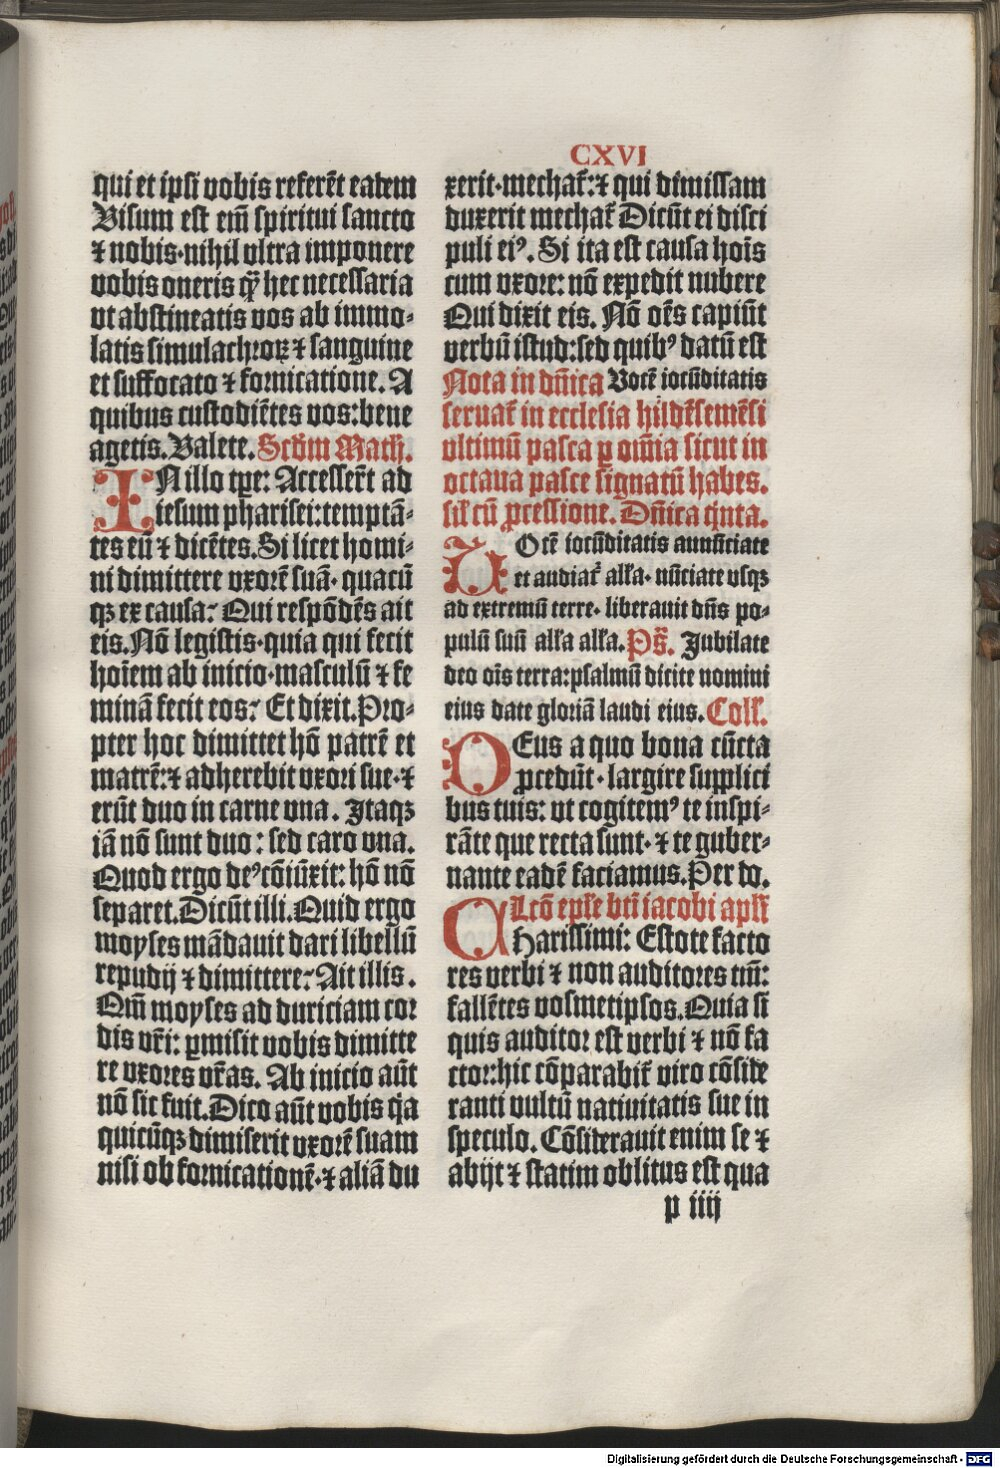 CXVI
qui et ipsi vobis referēt eadem
Visum est em̄ spiritui sancto
⁊ nobis·nihil vltra imponere
vobis oneris qͣ̄ hec necessaria
vt abstineatis vos ab immo-
latis simulachroꝝ ⁊ sanguine
et suffocato ⁊ fornicatione. A
quibus custodiētes vos:bene
agetis. Valete. Scd̄m Math̄.
IN illo tp̄e: Accesser̄t ad
iesum pharisei:temptā-
tes eū ⁊ dicētes. Si licet homi-
ni dimittere vxorē suā· quacū
qꝫ ex causa? Qui respōdēs ait
eis. Nō legistis·quia qui fecit
hoīem ab inicio·masculū ⁊ fe
minā fecit eos? Et dixit. Pro-
pter hoc dimittet hō patrē et
matrē:⁊ adherebit vxori sue·⁊
erūt duo in carne vna. Itaqꝫ
iā nō sunt duo: sed caro vna.
Quod ergo deꝰ cōiūxit: hō nō
separet. Dicūt illi. Quid ergo
moyses mādauit dari libellū
repudij ⁊ dimittere? Ait illis.
Qm̄ moyses ad duriciam cor
dis vr̄i: ꝑmisit vobis dimitte
re vxores vr̄as. Ab inicio aūt
nō sic fuit. Dico aūt vobis qͥa
quicūqꝫ dimiserit vxorē suam
nisi ob fornicationē·⁊ aliā du
xerit·mechat̄:⁊ qui dimissam
duxerit mechat̄ Dicūt ei disci
puli eiꝰ. Si ita est causa hoīs
cum vxore: nō expedit nubere
Qui dixit eis. Nō oēs capiūt
verbū istud:sed quibꝰ datū est
Nota in dn̄ica Vocē iocūditatis
seruat̄ in ecclesia hildēsemēsi
vltimū pasca ꝑ om̄ia sicut in
octaua pasce signatū habes.
sil̄ cū ꝓcessione. Dn̄ica qͥnta.
VOcē iocūditatis annūciate
et audiat̄ all̄a· nūciate vsqꝫ
ad extremū terre· liberauit dn̄s po-
pulū suū all̄a all̄a. Ps̄. Jubilate
deo oīs terra:psalmū dicite nomini
eius date gloriā laudi eius. Coll̄.
DEus a quo bona cūcta
ꝓcedūt·largire supplici
bus tuis: vt cogitemꝰ te inspi-
rāte que recta sunt· ⁊ te guber-
nante eadē faciamus. Per do.
Lcō epl̄e bt̄i iacobi apl̄i
CHarissimi: Estote facto
res verbi ⁊ non auditores tm̄:
fallētes vosmetipsos. Quia si
quis auditor est verbi ⁊ nō fa
ctor:hic cōparabit̄ viro cōside
ranti vultū natiuitatis sue in
speculo. Cōsiderauit enim se ⁊
abijt ⁊ statim oblitus est qua
p iiij
Digitalisierung gefördert durch die Deutsche Forschungsgemeinschaft - DFG